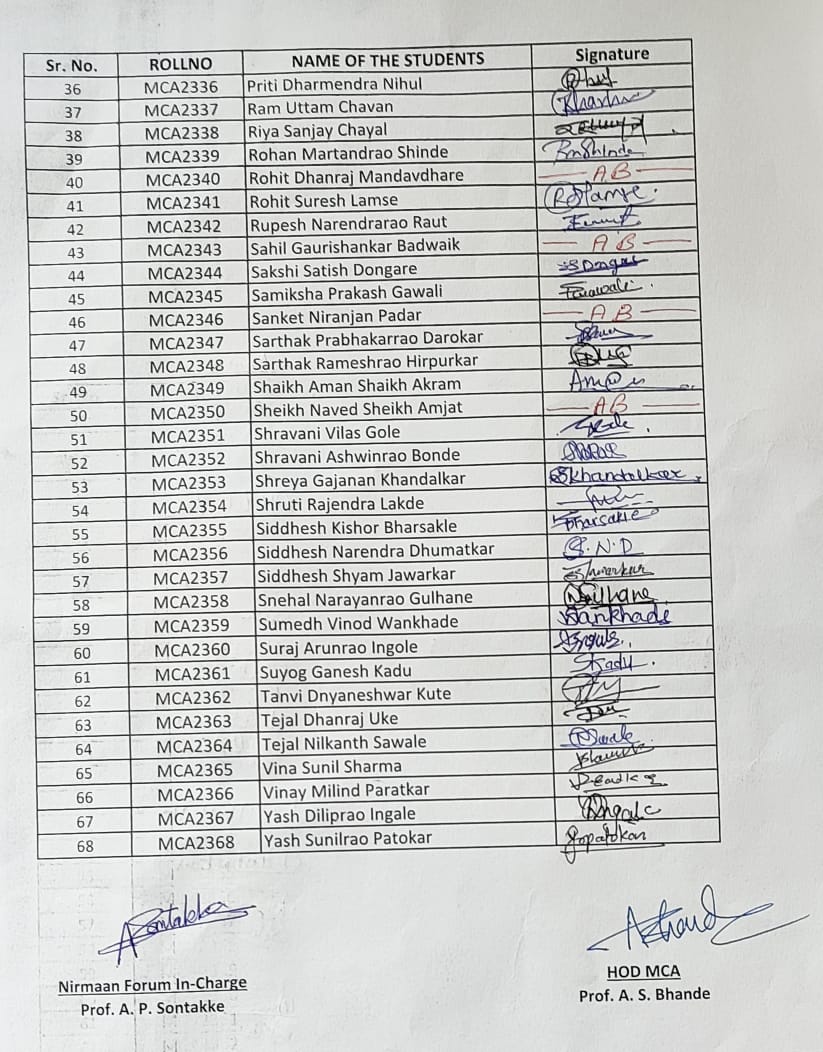 Sr. No. ROLLNO NAME OF THE STUDENTS Signature
36 MCA2336 Priti Dharmendra Nihul
37 MCA2337 Ram Uttam Chavan
38 MCA2338 Riya Sanjay Chayal
39 MCA2339 Rohan Martandrao Shinde RmShinde
40 MCA2340 Rohit Dhanraj Mandavdhare AB
41 MCA2341 Rohit Suresh Lamse RSLamse.
42 MCA2342 Rupesh Narendrarao Raut
43 MCA2343 Sahil Gaurishankar Badwaik AB
44 MCA2344 Sakshi Satish Dongare
45 MCA2345 Samiksha Prakash Gawali
46 MCA2346 Sanket Niranjan Padar AB
47 MCA2347 Sarthak Prabhakarrao Darokar
48 MCA2348 Sarthak Rameshrao Hirpurkar
49 MCA2349 Shaikh Aman Shaikh Akram
50 MCA2350 Sheikh Naved Sheikh Amjat AB
51 MCA2351 Shravani Vilas Gole
52 MCA2352 Shravani Ashwinrao Bonde
53 MCA2353 Shreya Gajanan Khandalkar
54 MCA2354 Shruti Rajendra Lakde
55 MCA2355 Siddhesh Kishor Bharsakle
56 MCA2356 Siddhesh Narendra Dhumatkar S.N.D
57 MCA2357 Siddhesh Shyam Jawarkar
58 MCA2358 Snehal Narayanrao Gulhane
59 MCA2359 Sumedh Vinod Wankhade Wankhade
60 MCA2360 Suraj Arunrao Ingole
61 MCA2361 Suyog Ganesh Kadu SKadu.
62 MCA2362 Tanvi Dnyaneshwar Kute
63 MCA2363 Tejal Dhanraj Uke
64 MCA2364 Tejal Nilkanth Sawale
65 MCA2365 Vina Sunil Sharma
66 MCA2366 Vinay Milind Paratkar
67 MCA2367 Yash Diliprao Ingale
68 MCA2368 Yash Sunilrao Patokar
Nirmaan Forum In-Charge
Prof. A. P. Sontakke
HOD MCA
Prof. A. S. Bhande